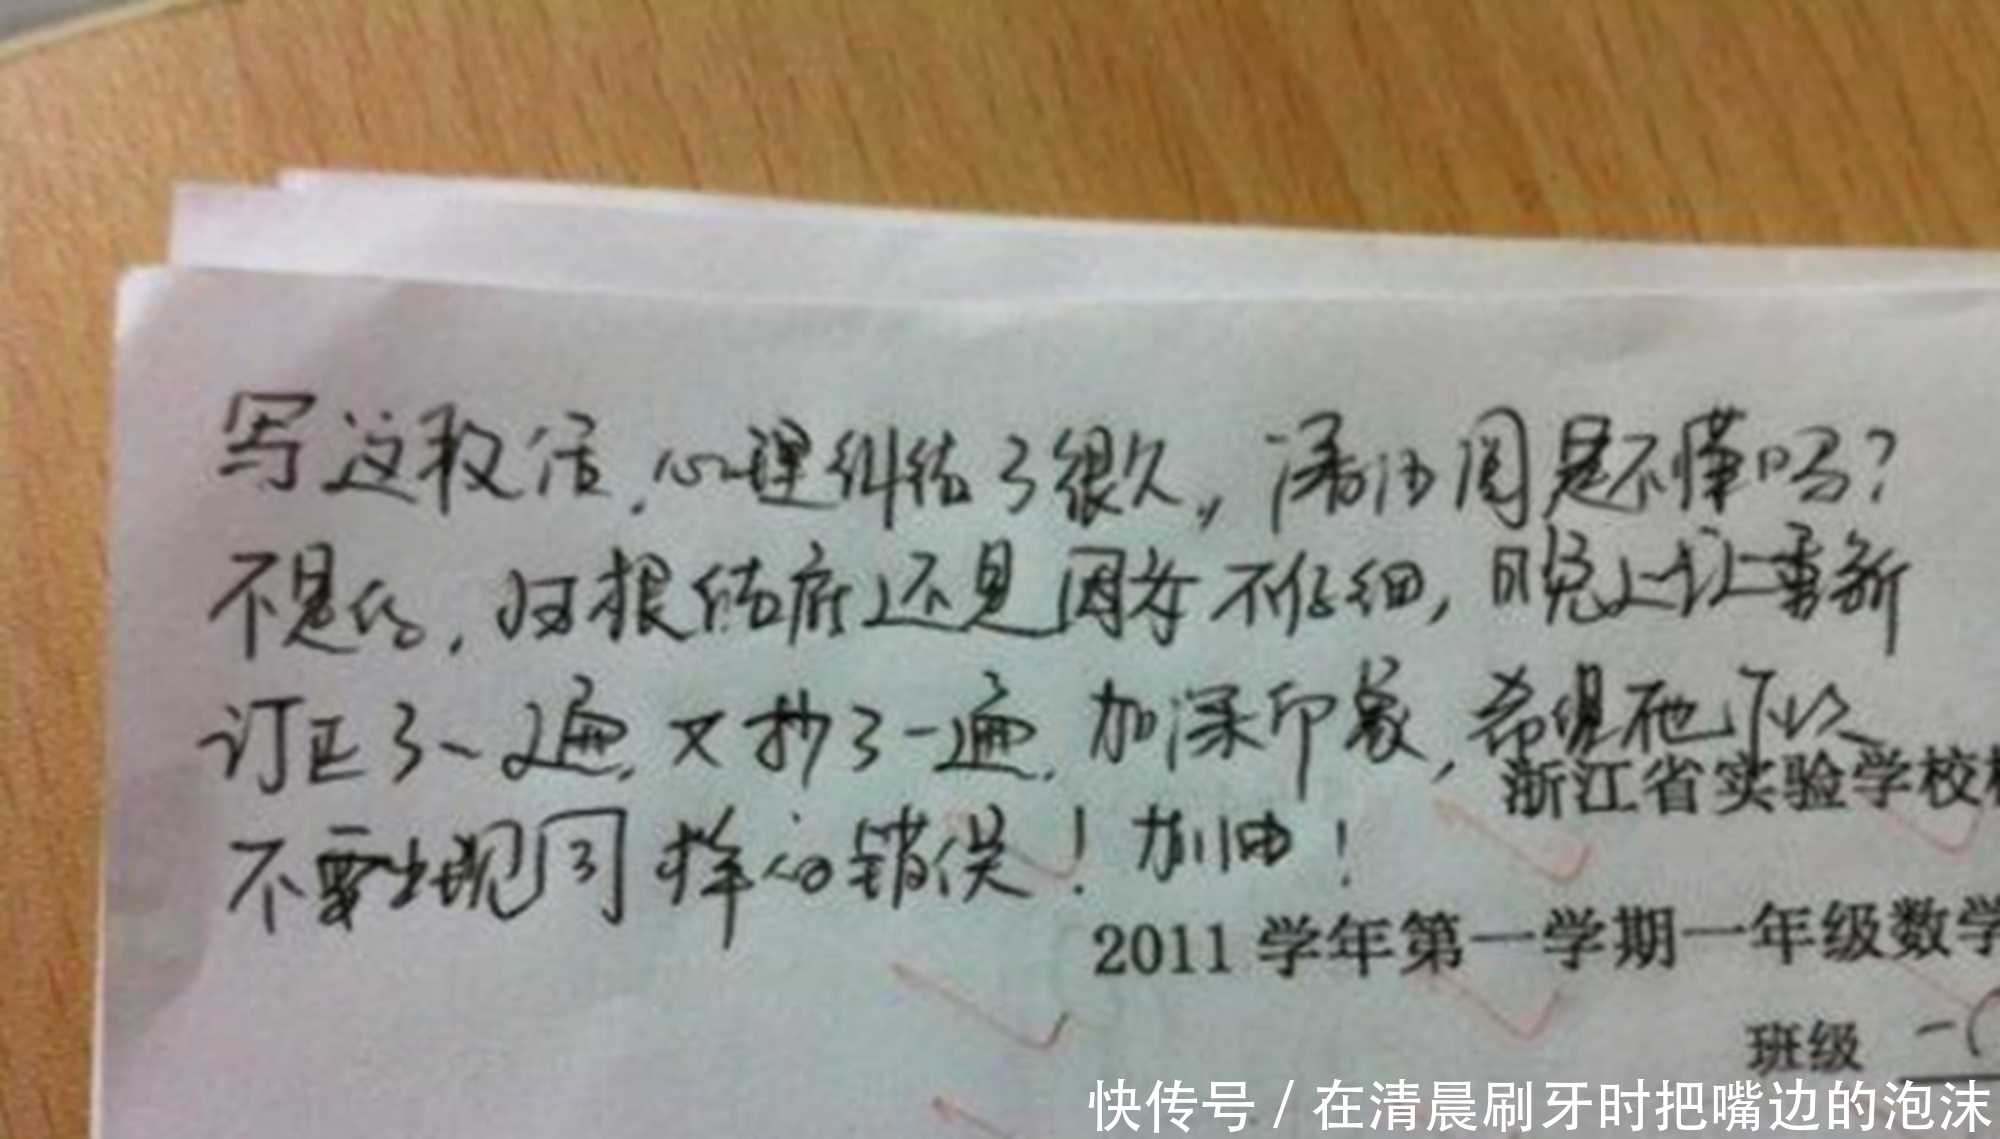 写这段话,心理纠结了很久,潘沛周是不懂吗?
不是的,归根结底还是因为不仔细,晚上我让重新
订正了一遍,又抄了一遍,加深印象,希望他可以
不要出现同样的错误!加油!
浙江省实验学校
2011 学年第一学期一年级数学
班级 一(
快传号 / 在清晨刷牙时把嘴边的泡沫